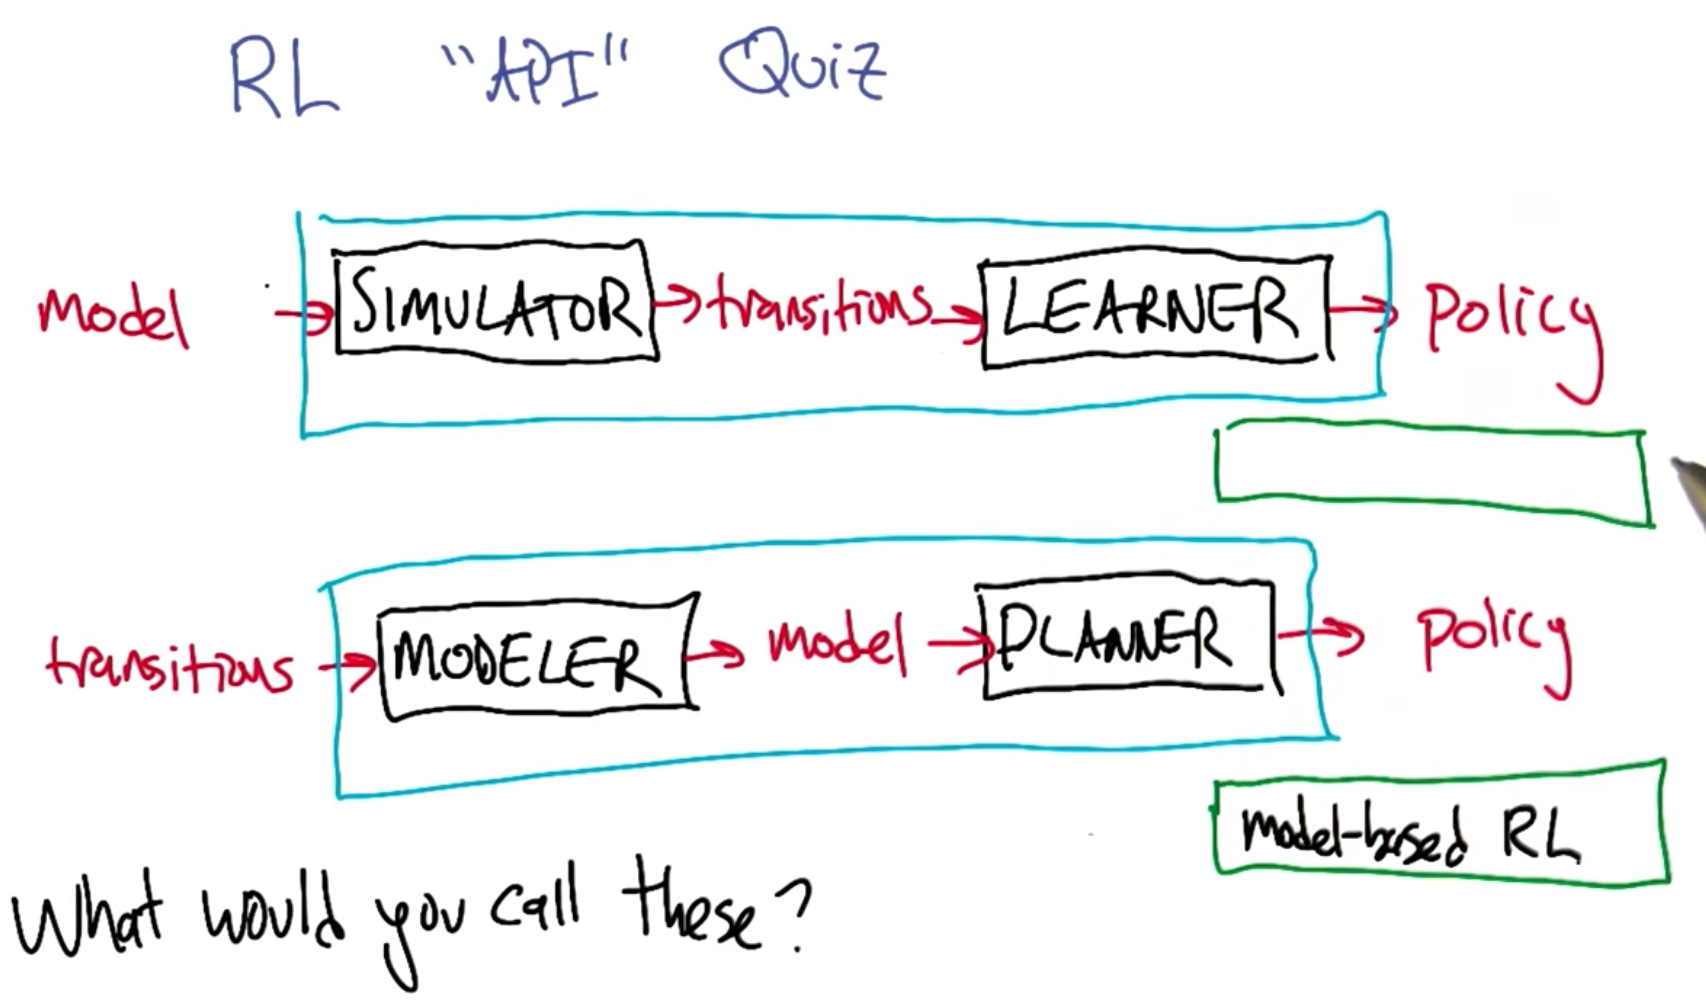 RL "API" Quiz
model → SIMULATOR → transitions → LEARNER → policy
transitions → MODELER → model → PLANNER → policy
model-based RL
What would you call these?